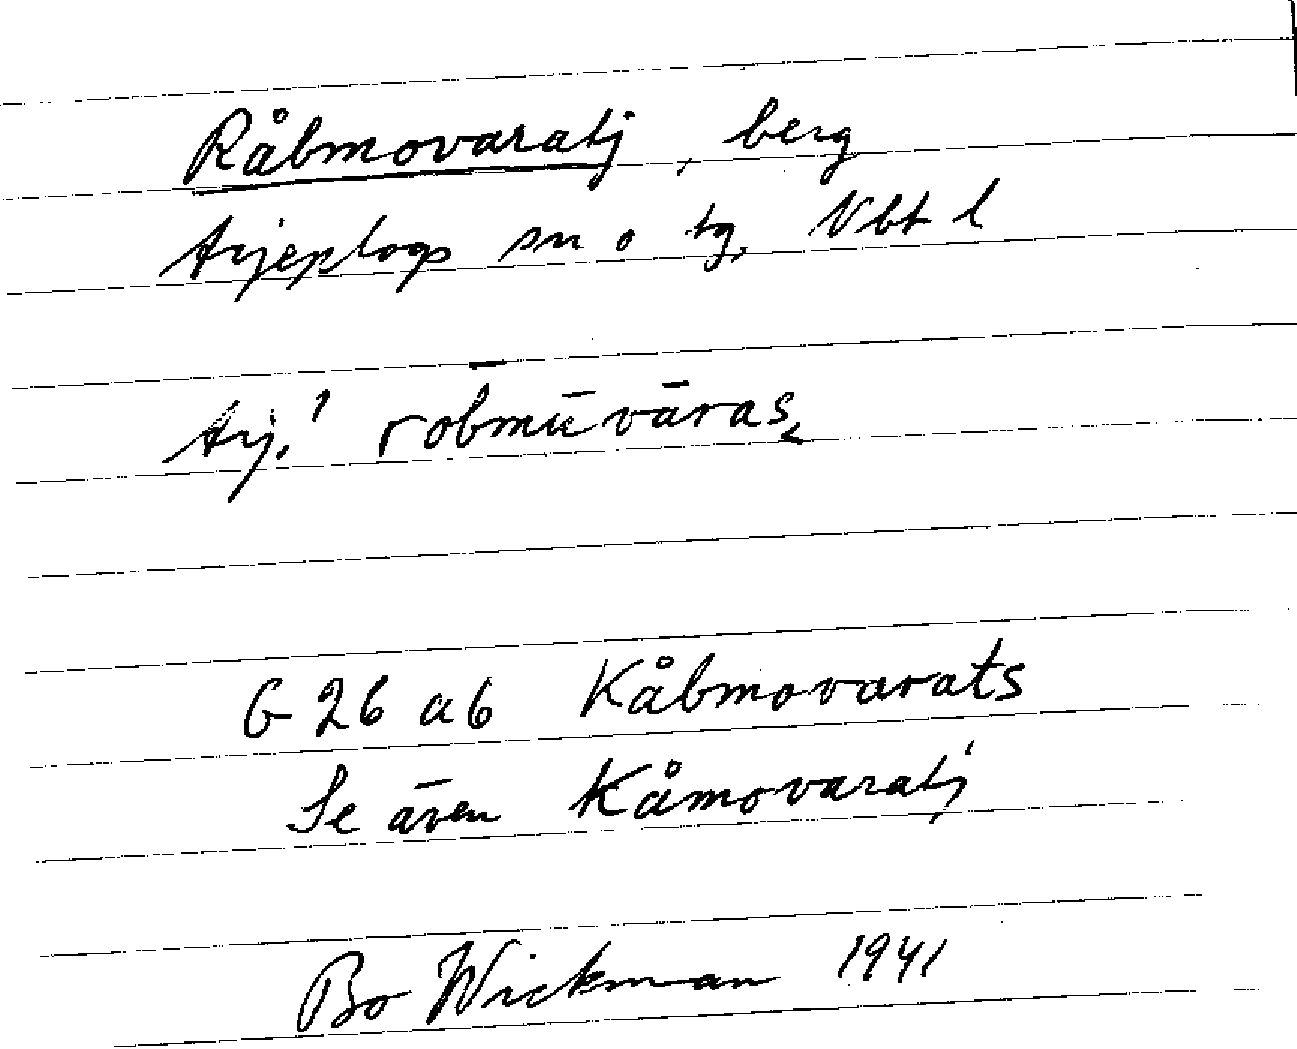 Råbmovaratj, berg
Arjeplogs sn o tg, Vbt l
Arj.! robmūvāras
G 26 ab Kåbmovarats
Se även Kåmovaratj
Bo Wickman 1941